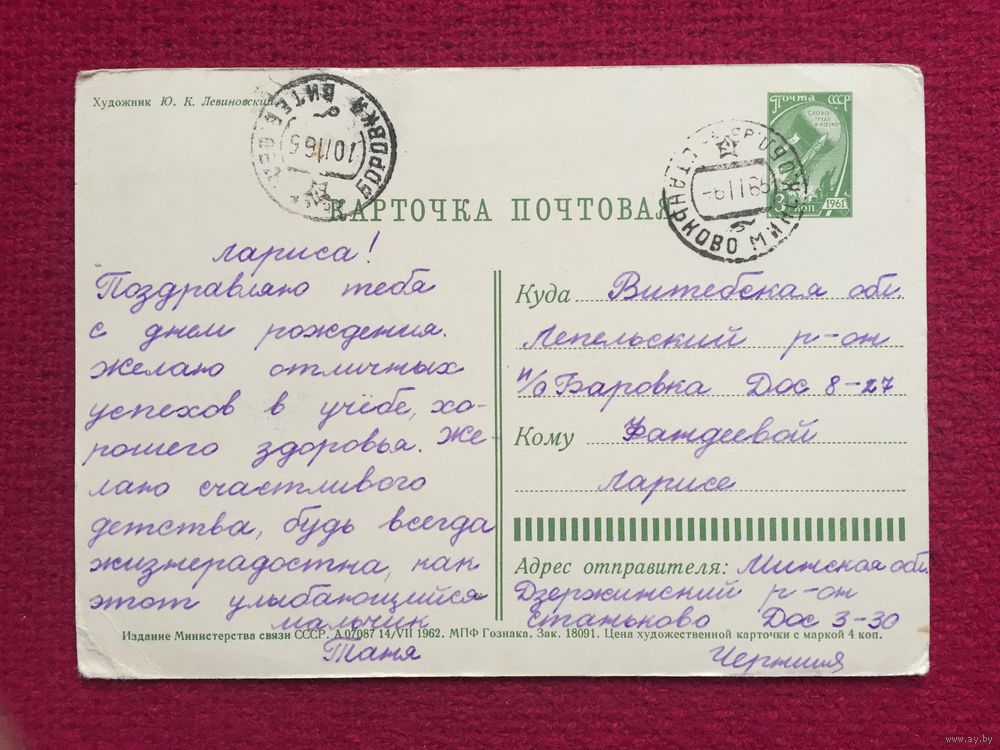 Художник Ю. К. Левиновский
БОРОВКА ВИТЕБ
10 II 65
Почта СССР
СЛОВО ТРУДУ И НАУКЕ
3 КОП 1961
СТАНЬКОВО МИН
-6 II 65
КАРТОЧКА ПОЧТОВАЯ
Лариса!
Поздравляю тебя
с днем рождения.
Желаю отличных
успехов в учёбе, хо-
рошего здоровья. Же-
лаю счастливого
детства, будь всегда
жизнерадостна, как
этот улыбающийся
мальчик
Таня
Куда Витебская обл.
Лепельский р-он
п/о Баровка Дос 8-27
Кому Фаждеевой
Ларисе
Адрес отправителя: Минская обл.
Дзержинский р-он
Станьково Дос 3-30
Издание Министерства связи СССР. А 07087 14/VII 1962. МПФ Гознака. Зак. 18091. Цена художественной карточки с маркой 4 коп.
www.ay.by